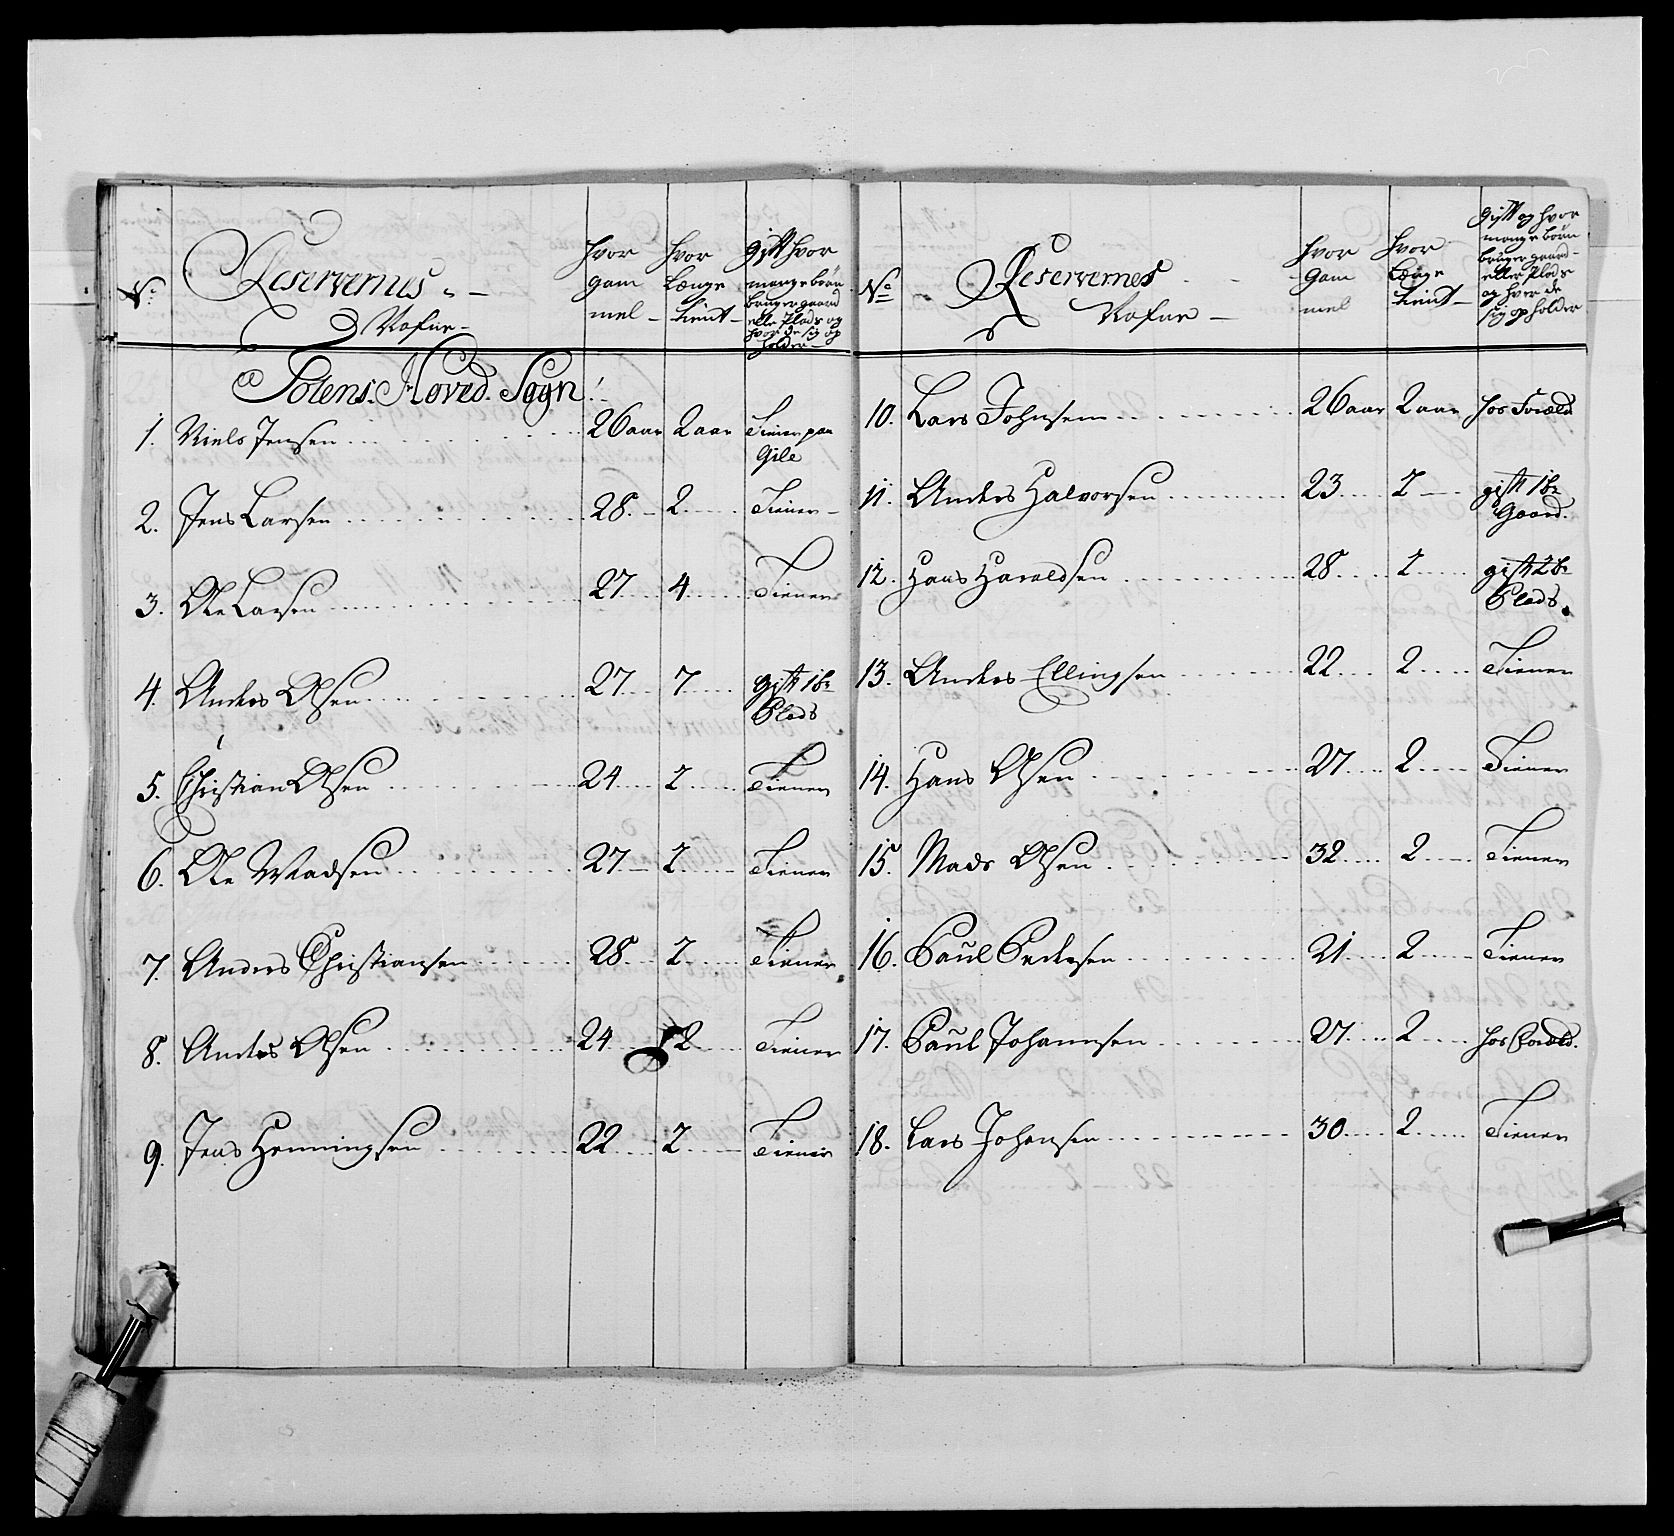 No. Reservernes Nafne hvor gammel hvor Længe tient gift hvor mange børn bruger gaard eller Plads og hvor de sig opholder
Totens Hoved Sogn
1. Niels Jensen 26 aar 2 aar Tiener paa Gile
2. Jens Larsen 28 2 Tiener
3. Ole Larsen 27 4 Tiener
4. Anders Olsen 27 7 gift 1 b. Plads
5. Christian Olsen 24 2 Tiener
6. Ole Madsen 27 2 Tiener
7. Anders Christiansen 28 2 Tiener
8. Anders Olsen 24 2 Tiener
9. Jens Henningsen 22 2 Tiener
No. Reservernes Nafne hvor gammel hvor Længe tient gift og hvor mange børn bruger gaard eller Plads og hvor de sig opholder
10. Lars Johnsen 26 aar 2 aar hos
11. Anders Halvorsen 23 2 gift 1 b. Gaard.
12. Hans Haraldsen 28 2 gift 2 b. Plads.
13. Anders Ellingsen 22 2 Tiener
14. Hans Olsen 27 2 Tiener
15. Mads Olsen 32 2 Tiener
16. Paul Pedersen 21 2 Tiener
17. Paul Johannsen 27 2 hos
18. Lars Johansen 30 2 Tiener